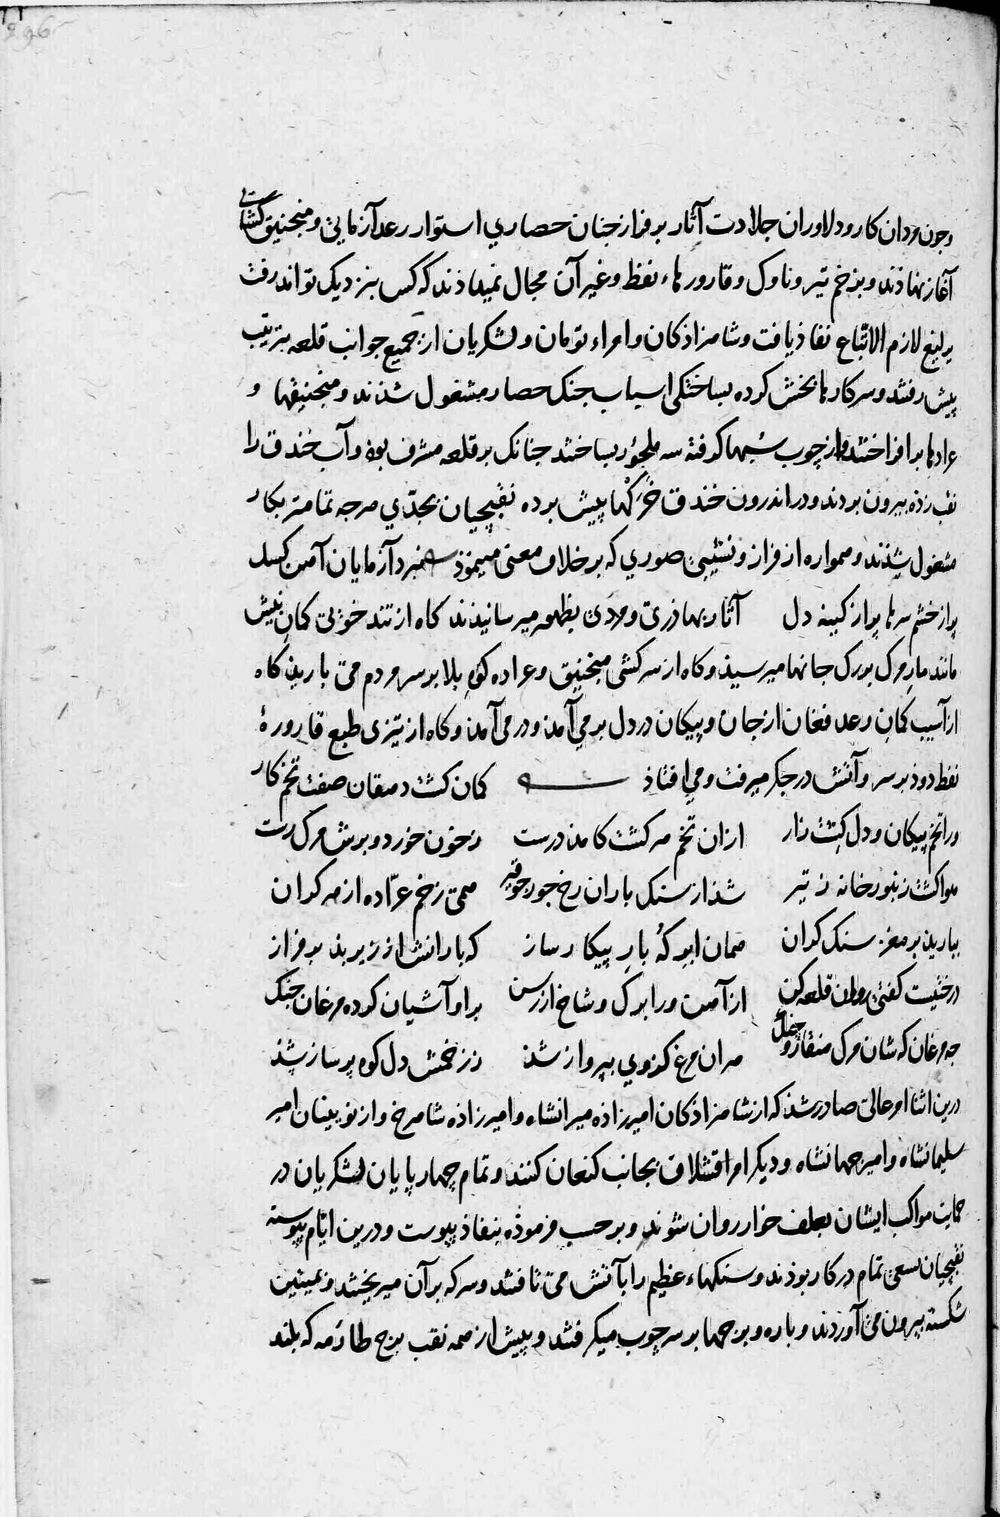 وجون مردان کار و دلاوران جلادت آثار بر فراز جنان حصاری استوار رعد آزمایی و منجنیق کشایی
آغاز نهاذند و بزخم تیر و ناوک و قارورهاء نفط و غیر آن مجال نمیداذند که کس بنزدیک تواند رفت
یرلیغ لازم الاتباع نفاذ یافت و شاهزاذکان و امراء تومان و لشکریان از جمیع جوانب قلعه بترتیب
پیش رفتند و سرکارها بخش کرده بساختکی اسباب جنک حصار مشغول شذند و منجنیقها و
عرادها بر افراختند و از چوب سیبها کرفته سه ملجور بساختند جنانک بر قلعه مشرف بوذ و آب خندق را
نقب زذه بیرون بردند و در اندرون خندق خرکها پیش برده نقبجیان بجدی هرجه تمامتر بکار
مشغول شذند و همواره از فراز و نشیبی صوری که بر خلاف معنی مینموذ نبرد آزمایان آهن کسل
پر از خشم سرها پر از کینه دل آثار بهاذری و مردی بظهور میرسانیذند کاه از تند خوئی کمان نیش
مانند مار مرک بورک جانها میرسیذ و کاه از سر کشی منجنیق و عراده کوه بلا بر سر مردم می باریذ کاه
از آسیب کمان رعد فغان از جان و پیکان در دل بر می آمذ و در می آمذ و کاه از تیزی طبع قارورهٔ
نفط دوذ بر سر و آتش در جکر میرفت و می افتاذ کمان کشت دهقان صفت تخم کار
ورا تخم پیکان و دل کشت زار از ان تخم هر کشت کامذ درست ز خون خورد و برش مرک رست
هوا کشت زنبور خانه ز تیر شذ از سنک باران رخ جور جو قیر همی زخم عراده از هر کران
بباریذ بر مغز سنک کران همان ابر که بار پیکار ساز که بارانش از زیر بذ بر فراز
درختیست کفتی روان قلعه کن از آهن ورا برک و شاخ از رسن بر او آشیان کرده مرغان جنک
جه مرغان که شان مرک منقار و جنک هر ان مرغ کز وی بپرواز شذ ز زخمش دل کوه پر ساز شذ
درین اثنا امر عالی صادر شذ که از شاهزاذکان امیرزاذه میرانشاه و امیرزاذه شاهرخ و از نویینان امیر
سلیمانشاه و امیر جهانشاه و دیکر امرا قشلاق بجانب کنعان کنند و تمام چهار پایان لشکریان در
حمایت مواکب ایشان بعلف خوار روان شوند و بر حسب فرموذه بنفاذ پیوست و درین ایام پیوسته
نقبجیان بسعی تمام در کار بوذند و سنکهاء عظیم را بآتش می تافتند و سرکه بر آن میریختند و بمیتین
شکسته بیرون می آوردند و باره و برجها بر سر چوب میکرفتند و پیش از همه نقب برج طارمه که بلند